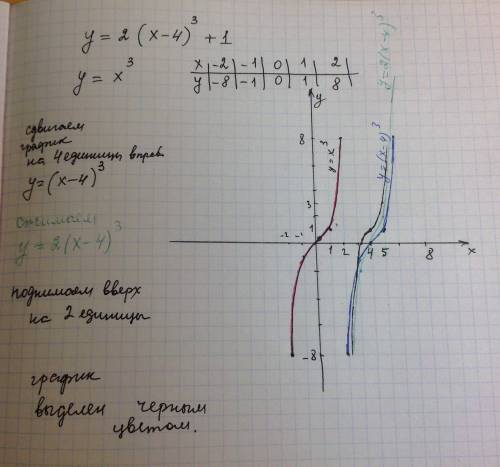 y = 2 (x-4)³ + 1
y = x³
x | -2 | -1 | 0 | 1 | 2 |
y | -8 | -1 | 0 | 1 | 8 |
сдвигаем
график
на 4 единицы вправ
y = (x-4)³
сжимаем
y = 2(x-4)³
поднимаем вверх
на 2 единицы
график
выделен черным
цветом.
y
8
3
1
-2 -1
1 2 4 5 8 x
-8
y = x³
y = (x-4)³
y = 2(x-4)³